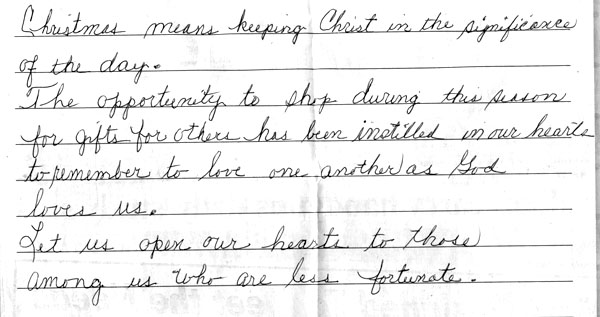 Christmas means keeping Christ in the significance
of the day.
The opportunity to shop during this season
for gifts for others has been instilled in our hearts
to remember to love one another as God
loves us.
Let us open our hearts to those
among us who are less fortunate.